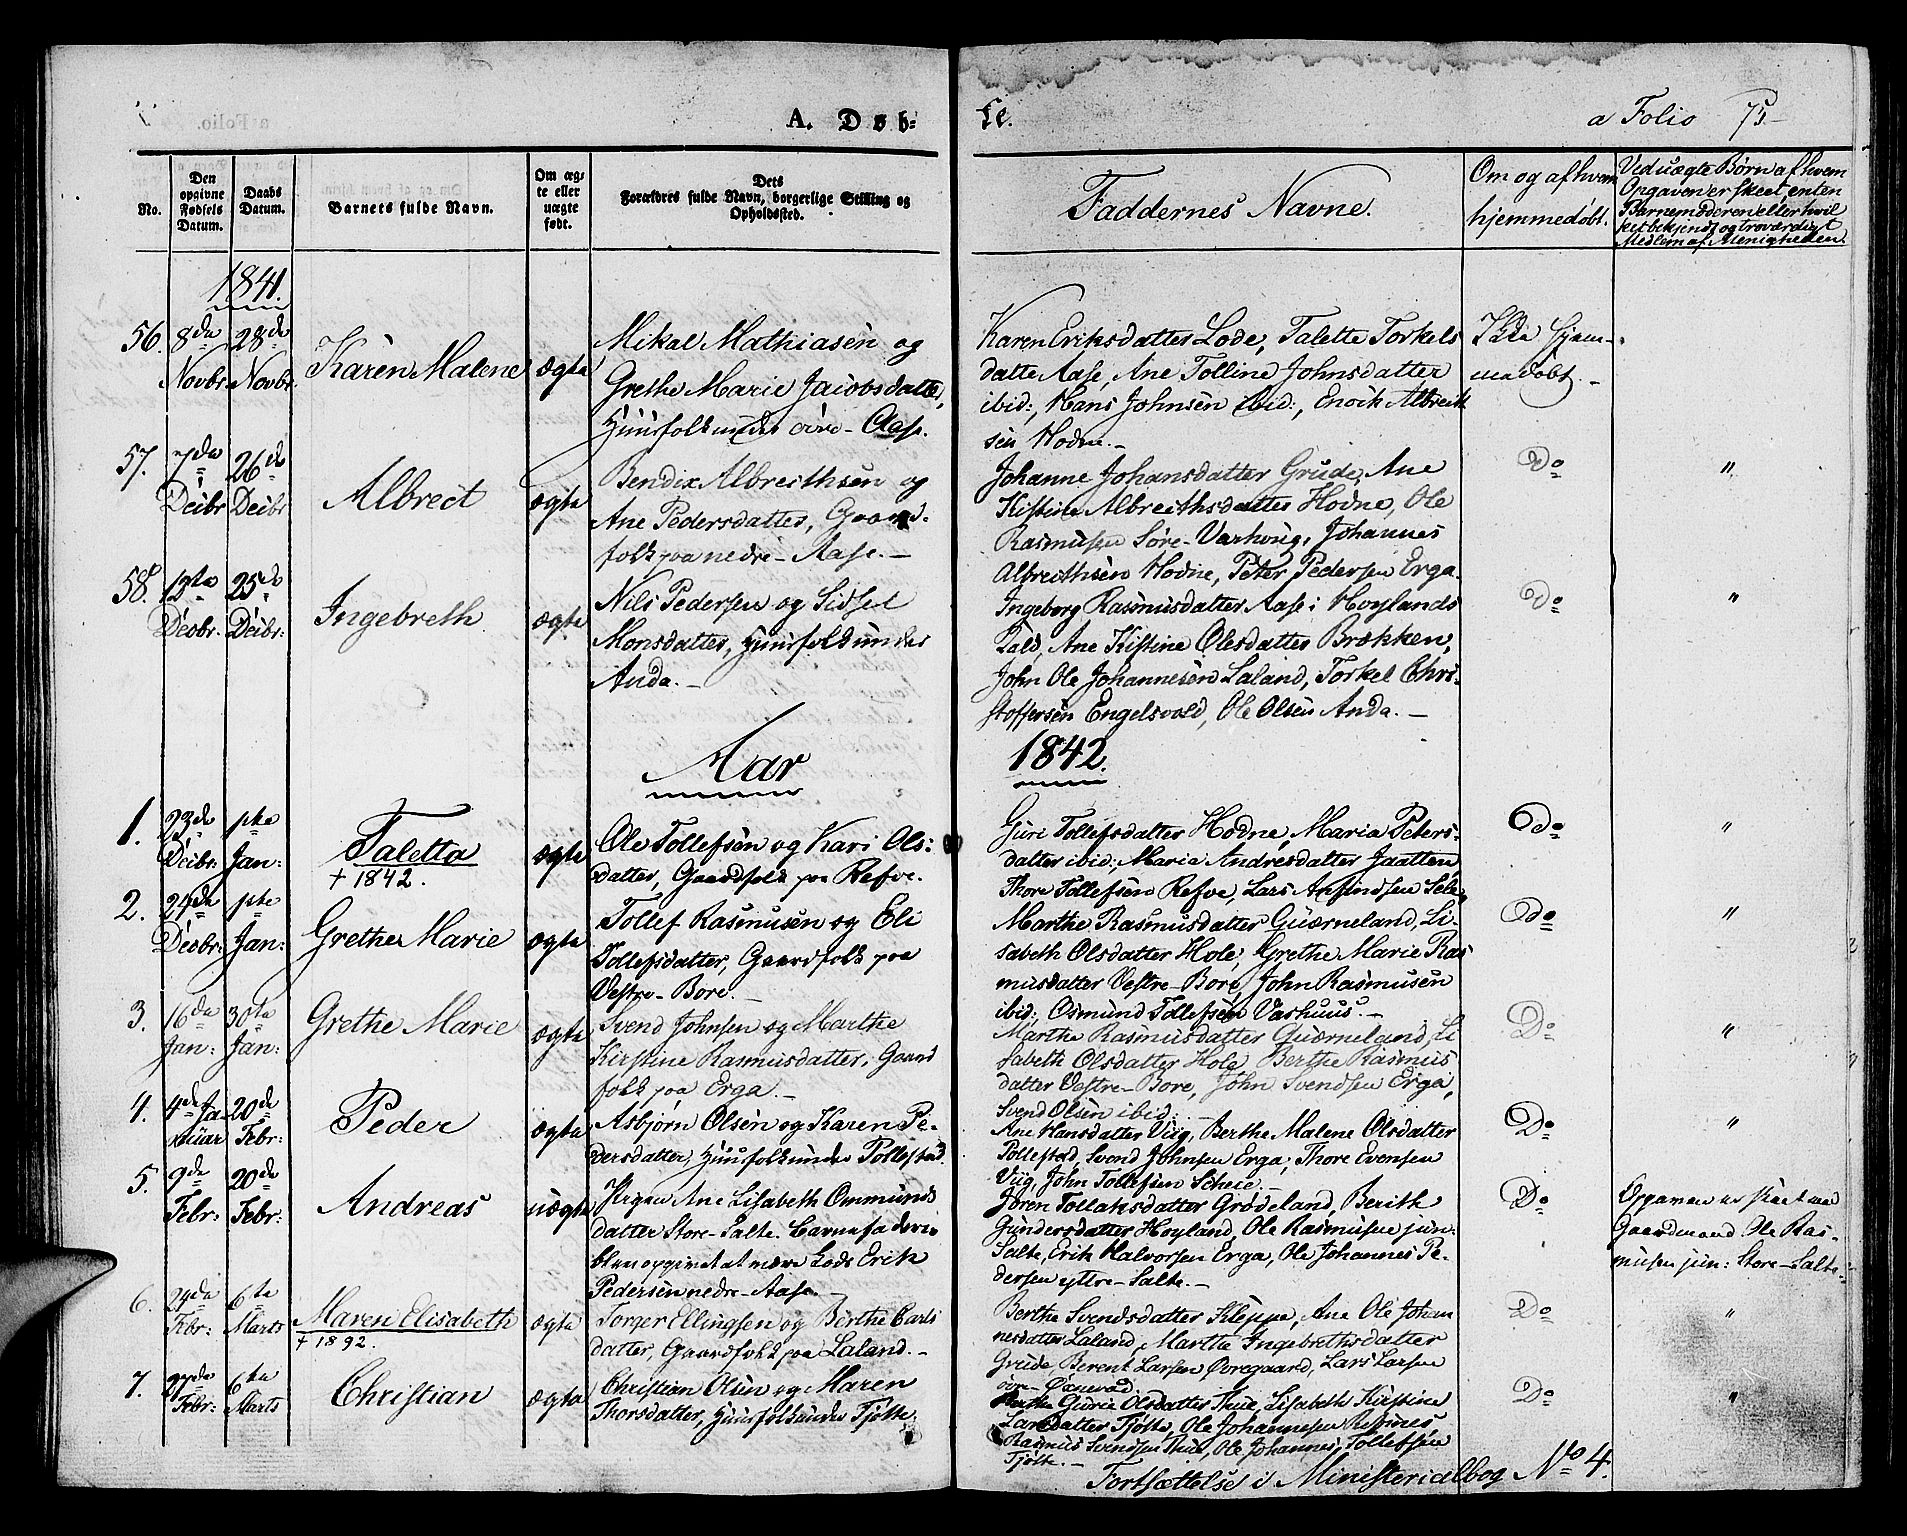 A. Døb-
te.
a Folio 75
No.
Den opgivne Fødsels Datum.
Daabs Datum.
Barnets fulde Navn.
Om æg-
te eller
uægte
født.
Dets
Forældres fulde Navn, borgerlige Stilling og
Opholdssted.
Faddernes Navne.
Om og af hvem
hjemmedøbt.
Ved uægte Børn af hvem
Opgaven er skeet, enten
Barnemoderen eller hvil
ket bekjendt og troværdigt
Medlem af Menigheden.
1841.
56. 8de Novbr. 28de Novbr. Karen Malene ægte
Mikal Mathiasen og
Grethe Marie Jacobsdatter,
Huusfolk under øvre-Aase.
Karen Eriksdatter Lode, Talette Torkels
datter Aase, Ane Tolline Johnsdatter
ibid:, Hans Johnsen ibid:, Enok Albrect
sen Hodne.-
Ikke hjem-
medøbt.-
57. 7de Decbr 26de Decbr Albrect ægte
Bendix Albrecthsen og
Ane Pedersdatter, Gaard-
folk paa nedre-Aase.-
Johanne Johansdatter Grude, Ane
Kistine Albrecthsdatter Hodne, Ole
Rasmusen Søre-Varhoug, Johannes
Albrecthsen Hodne, Peter Pedersen Erga.
Do "
58. 12te Decbr. 25de Decbr: Ingebreth ægte
Nils Pedersen og Sidsel
Monsdatter, Huusfolk under
Anda.-
Ingeborg Rasmusdatter Aase i Hoylands
Gald, Ane Kistine Olesdatter Brækken,
John Ole Johannesen Laland, Torkel Chri-
stoffersen Engelsvold, Ole Olsen Anda.-
Do "
Aar 1842.
1. 23de Decbr: 1ste Jan: Taletta ægte
+ 1842.
Ole Tollefsen og Kari Ols:
datter, Gaardfolk paa Refve.
Guri Tollefsdatter Hodne, Maria Peters-
datter ibid:, Maria Andresdatter Jaatten
Thore Tollefsen Refve, Lars Arfindsen Sele,
Do "
2. 24de Decbr: 1ste Jan: Grethe Marie ægte
Tollef Rasmusen og Eli
Tollefsdatter, Gaardfolk paa
Vestre-Bore.-
Marthe Rasmusdatter Guærneland, Li-
sabeth Olsdatter Hole, Grethe Marie Ras
musdatter Vestre-Bore, John Rasmusen
ibid:, Osmund Tollefsen Varhuus.-
Do "
3. 16de Jan: 30te Jan: Grethe Marie ægte
Svend Johnsen og Marthe
Kirstine Rasmusdatter, Gaard
folk paa Erga.-
Marthe Rasmusdatter Guærneland, Li
sabeth Olsdatter Hole, Berthe Rasmus
datter Vestre-Bore, John Svendsen Erga,
Svend Olsen ibid:
Do "
4. 4de Ja-
nuar 20de Febr: Peder ægte
Asbjørn Olsen og Karen Pe-
dersdatter, Huusfolk under Pollestad.
Ane Hansdatter Viig, Berthe Malene Olsdatter
Pollestad, Svend Johnsen Erga, Thore Evensen
Viig, John Tollefsen Scheie.-
Do "
5. 9de Febr: 20de Febr: Andreas uægte
Pigen Ane Lisabeth Ommunds
datter Store-Salte. Barnefaderen
blev opgivet at være Lods Erik
Pedersen nedre-Aase.-
Joren Tollaksdatter Grødeland, Berith
Gundersdatter Hoyland, Ole Rasmusen jun:
Salte, Erik Halvorsen Erga, Ole Johannes Pe-
dersen yttre-Salte.-
Do
Opgaven er skeet ved
Gaardmand Ole Ras-
musen jun: Store-Salte.
6. 24de Febr: 6te Marts Maren Elisabeth ægte
+ 1892.
Torger Ellingsen og Berthe Carls
datter, Gaardfolk paa Laland.-
Berthe Svendsdatter Kleppe, Ane Ole Johan
nesdatter Laland, Martha Ingebrethsdatter
Grude, Berent Larsen Øvregaard, Lars Larsen
øvre-Øxnevad.
Do "
7. 27de Febr: 6te Marts Christian ægte
Christian Olsen og Maren
Thorsdatter, Huusfolk under Tjøtte.
Berthe Gurie Olsdatter Thue, Lisabeth Kirstine
Larsdatter Tjøtte, Ole Johannesen Refsnes
Rasmus Svendsen Thue, Ole Johannes Tollefsen
Tjøtte.-
Do "
Fortsættelse i Ministerialbog No 4.